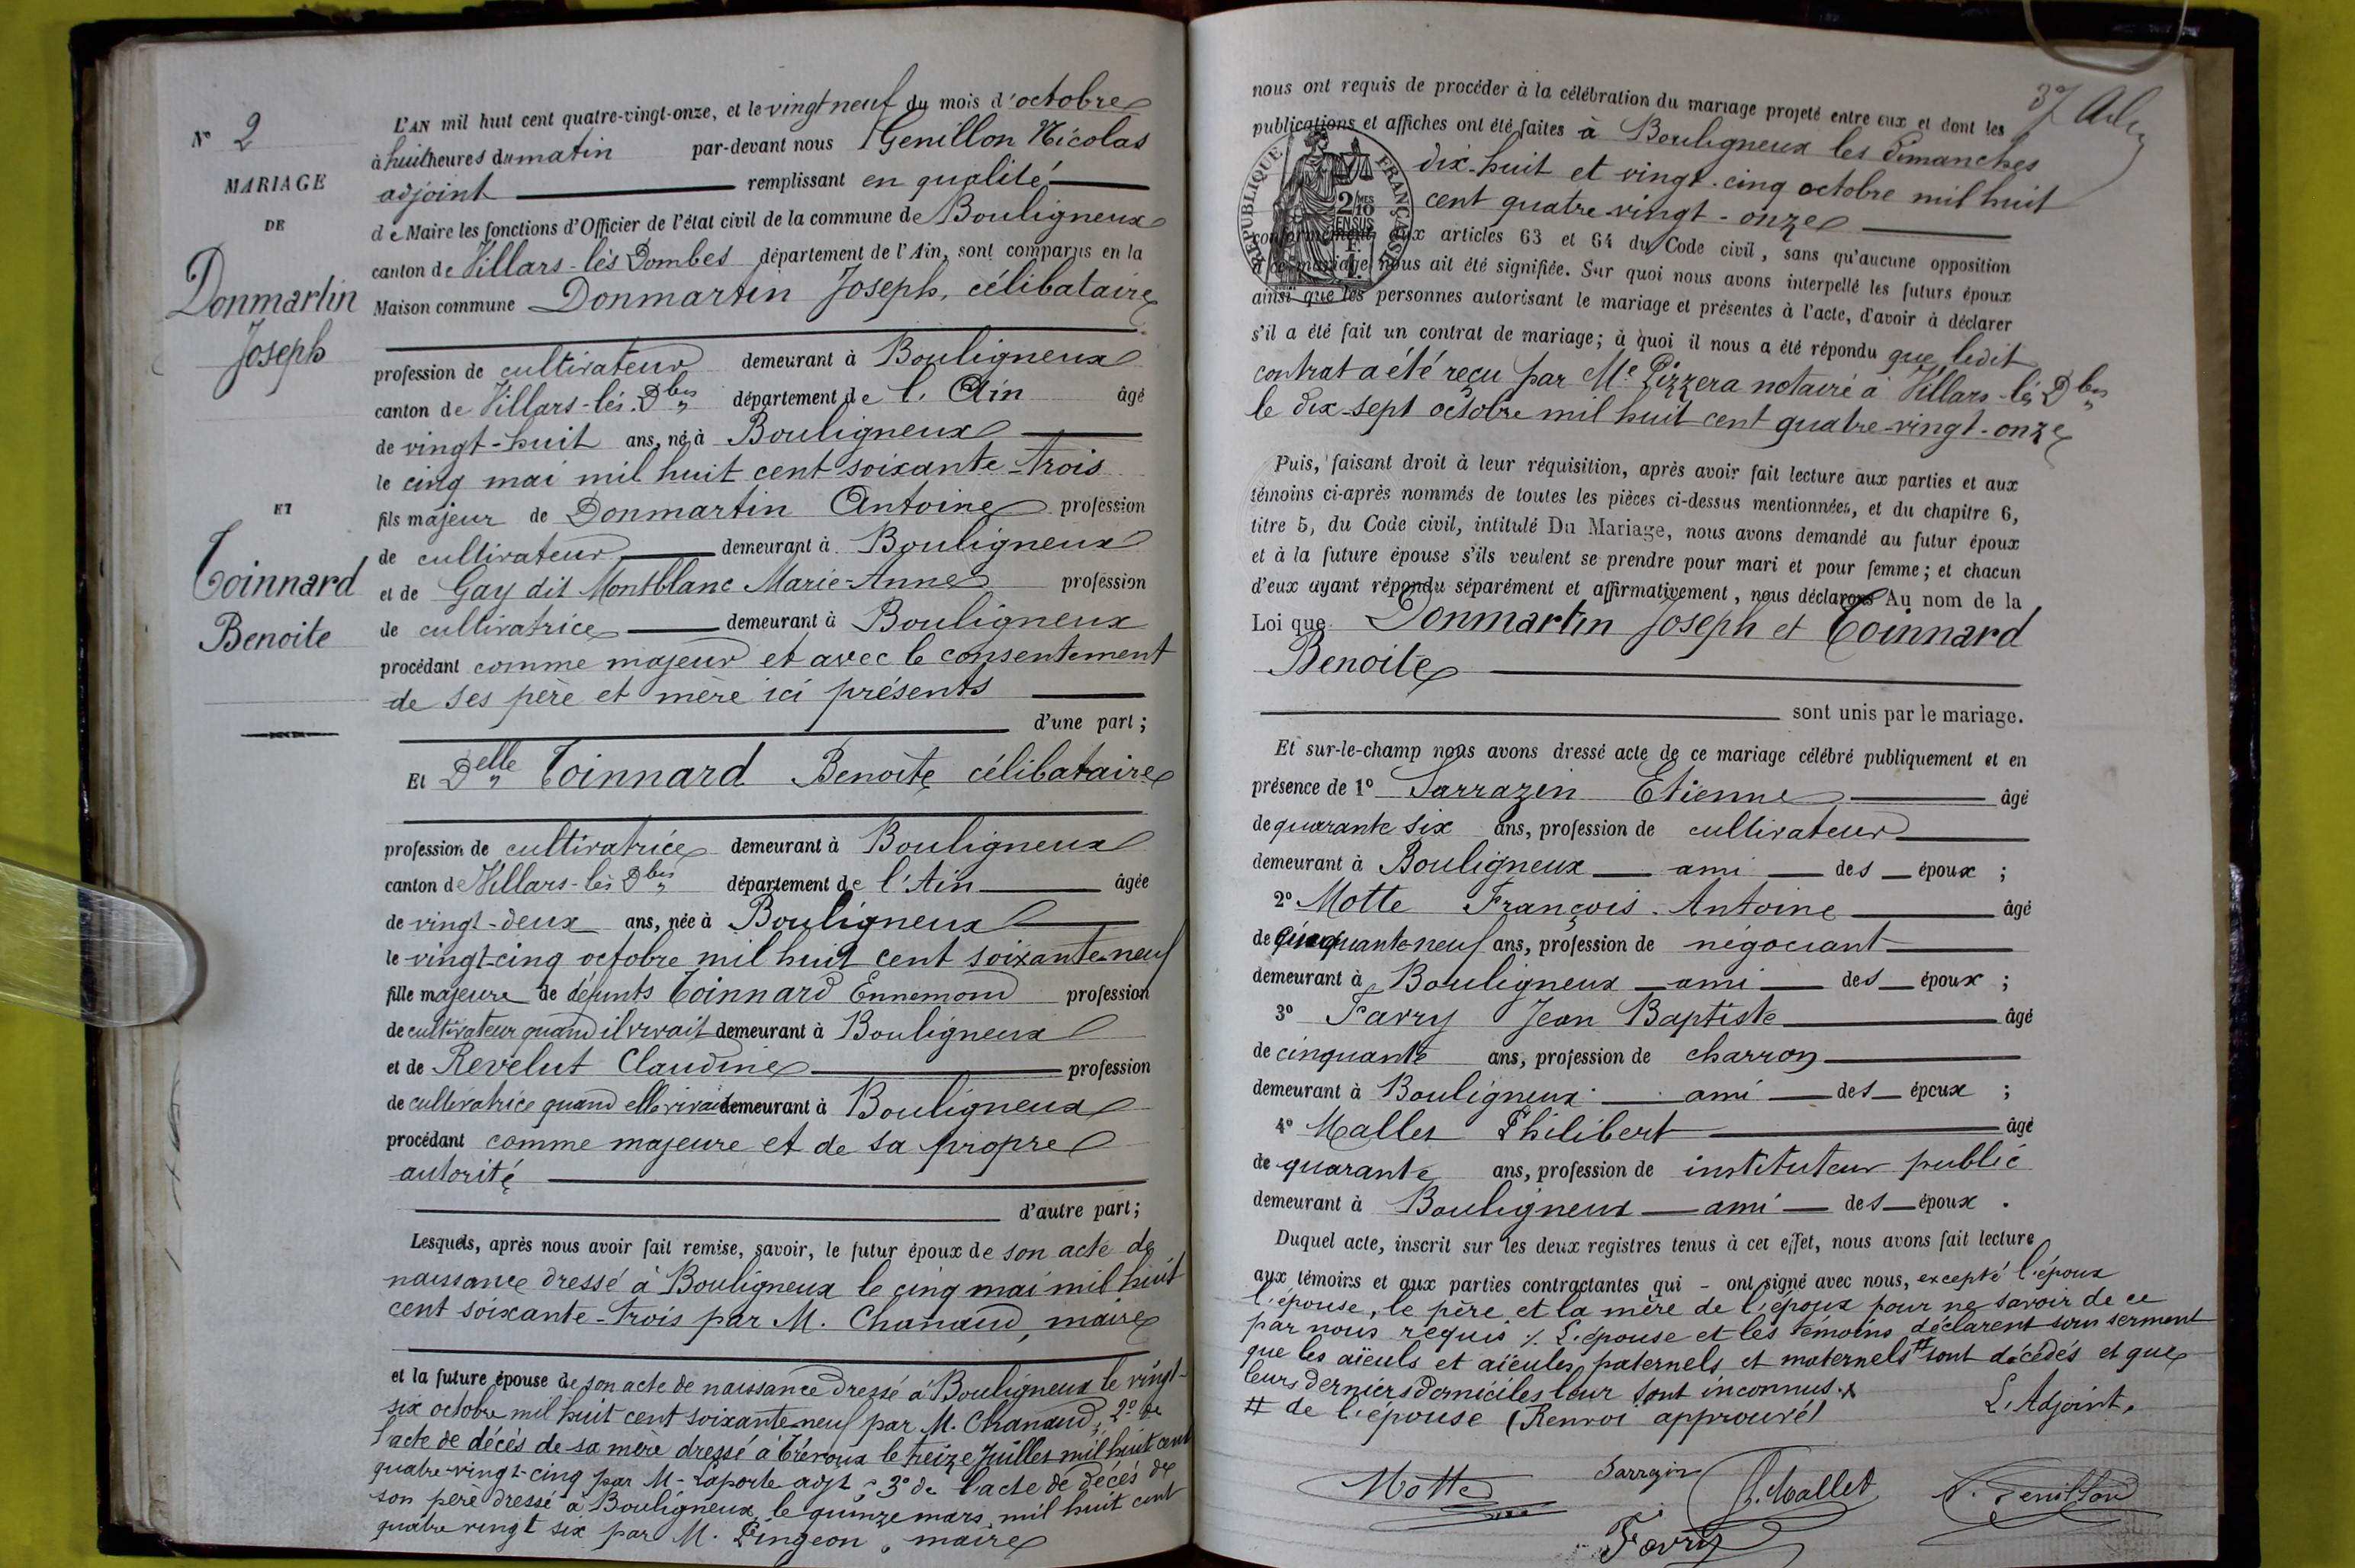 N° 2
MARIAGE
DE
Donmartin
Joseph
ET
Coinnard
Benoite
L'AN mil huit cent quatre-vingt-onze, et le vingt neuf du mois d'octobre
à huit heures du matin par-devant nous Genillon Nicolas
adjoint remplissant en qualité
de Maire les fonctions d'Officier de l'état civil de la commune de Bouligneux
canton de Villars-les Dombes département de l'Ain, sont comparus en la
Maison commune Donmartin Joseph, célibataire
profession de cultivateur demeurant à Bouligneux
canton de Villars-lès-Dbes département de l'Ain âgé
de vingt-huit ans, né à Bouligneux
le cinq mai mil huit cent soixante-trois
fils majeur de Donmartin Antoine profession
de cultivateur demeurant à Bouligneux
et de Gay dit Montblanc Marie-Anne profession
de cultivatrice demeurant à Bouligneux
procédant comme majeur et avec le consentement
de ses père et mère ici présents
d'une part;
Et Delle Coinnard Benoite célibataire
profession de cultivatrice demeurant à Bouligneux
canton de Villars-lès Dbes département de l'Ain âgée
de vingt-deux ans, née à Bouligneux
le vingt-cinq octobre mil huit cent soixante-neuf
fille majeure de défunts Coinnard Ennemond profession
de cultivateur quand il vivait demeurant à Bouligneux
et de Revelut Claudine profession
de cultivatrice quand elle vivait demeurant à Bouligneux
procédant comme majeure et de sa propre
autorité
d'autre part;
Lesquels, après nous avoir fait remise, savoir, le futur époux de son acte de
naissance dressé à Bouligneux le cinq mai mil huit
cent soixante-trois par M. Chanaud, maire
et la future épouse de son acte de naissance dressé à Bouligneux le vingt-
six octobre mil huit cent soixante neuf par M. Chanaud; 2° de
l'acte de décès de sa mère dressé à Trévoux le treize Juillet mil huit cent
quatre-vingt-cinq par M. Laporte adjt; 3° de l'acte de décès de
son père dressé à Bouligneux le quinze mars mil huit cent
quatre vingt six par M. Pingeon, maire
37
nous ont requis de procéder à la célébration du mariage projeté entre eux et dont les
publications et affiches ont été faites à Bouligneux les dimanches
dix-huit et vingt-cinq octobre mil huit
cent quatre-vingt-onze
RÉPUBLIQUE FRANÇAISE
2/10 MES
EN SUS
1 F.
conformément aux articles 63 et 64 du Code civil, sans qu'aucune opposition
à ce mariage nous ait été signifiée. Sur quoi nous avons interpellé les futurs époux
ainsi que les personnes autorisant le mariage et présentes à l'acte, d'avoir à déclarer
s'il a été fait un contrat de mariage; à quoi il nous a été répondu que ledit
contrat a été reçu par Me Pizzera notaire à Villars-lès Dbes
le dix-sept octobre mil huit cent quatre-vingt-onze
Puis, faisant droit à leur réquisition, après avoir fait lecture aux parties et aux
témoins ci-après nommés de toutes les pièces ci-dessus mentionnées, et du chapitre 6,
titre 5, du Code civil, intitulé Du Mariage, nous avons demandé au futur époux
et à la future épouse s'ils veulent se prendre pour mari et pour femme; et chacun
d'eux ayant répondu séparément et affirmativement, nous déclarons Au nom de la
Loi que Donmartin Joseph et Coinnard
Benoite
sont unis par le mariage.
Et sur-le-champ nous avons dressé acte de ce mariage célébré publiquement et en
présence de 1° Sarrazin Etienne âgé
de quarante six ans, profession de cultivateur
demeurant à Bouligneux ami des époux ;
2° Motte François-Antoine âgé
de cinquante-neuf ans, profession de négociant
demeurant à Bouligneux ami des époux ;
3° Favry Jean Baptiste âgé
de cinquante ans, profession de charron
demeurant à Bouligneux ami des époux ;
4° Mallet Philibert âgé
de quarante ans, profession de instituteur public
demeurant à Bouligneux ami des époux .
Duquel acte, inscrit sur les deux registres tenus à cet effet, nous avons fait lecture
aux témoins et aux parties contractantes qui - ont signé avec nous, excepté l'époux
l'épouse, le père et la mère de l'époux pour ne savoir de ce
par nous requis ./. L'épouse et les témoins déclarent sous serment
que les aïeuls et aïeules paternels et maternels # sont décédés et que
leurs derniers domiciles leur sont inconnus.
# de l'épouse (Renvoi approuvé)
L'Adjoint,
Motte
Sarrazin
P. Mallet
N. Genillon
Favry